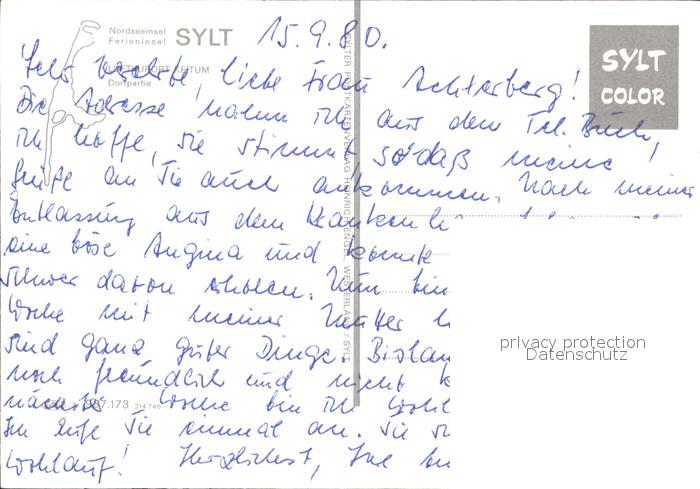 Nordseeinsel
Ferieninsel SYLT
15.9.80.
SYLT
COLOR
liebe Frau Achterberg!
KEITUM
Dorfpartie
Die Adresse nahm ich aus dem Tel. Buch,
ich hoffe, sie stimmt, sodaß meine
Grüße an Sie auch ankommen. Nach meiner
Entlassung aus dem
eine böse Angina und konnte
schwer davon erholen. Nun bin
Woche mit meiner Mutter
sind ganz guter Dinge. Bislang
noch freundlich und nicht
nächste Woche bin ich
Ich rufe Sie einmal an. Sie
Wohlauf! Herzlichst, Ihre
SYLTER POSTKARTENVERLAG HEINRICH ENGEL, WESTERLAND / SYLT
privacy protection
Datenschutz